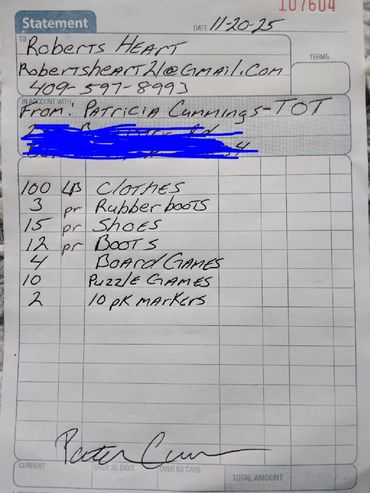 107604
Statement
DATE 11-20-25
TO
Roberts Heart
TERMS
Robertsheart21@Gmail.com
409-597-8993
IN ACCOUNT WITH
From: Patricia Cummings-TOT
100 LB Clothes
3 pr Rubber boots
15 pr Shoes
12 pr Boots
4 Board Games
10 Puzzle Games
2 10 pk markers
CURRENT OVER 30 DAYS OVER 60 DAYS TOTAL AMOUNT